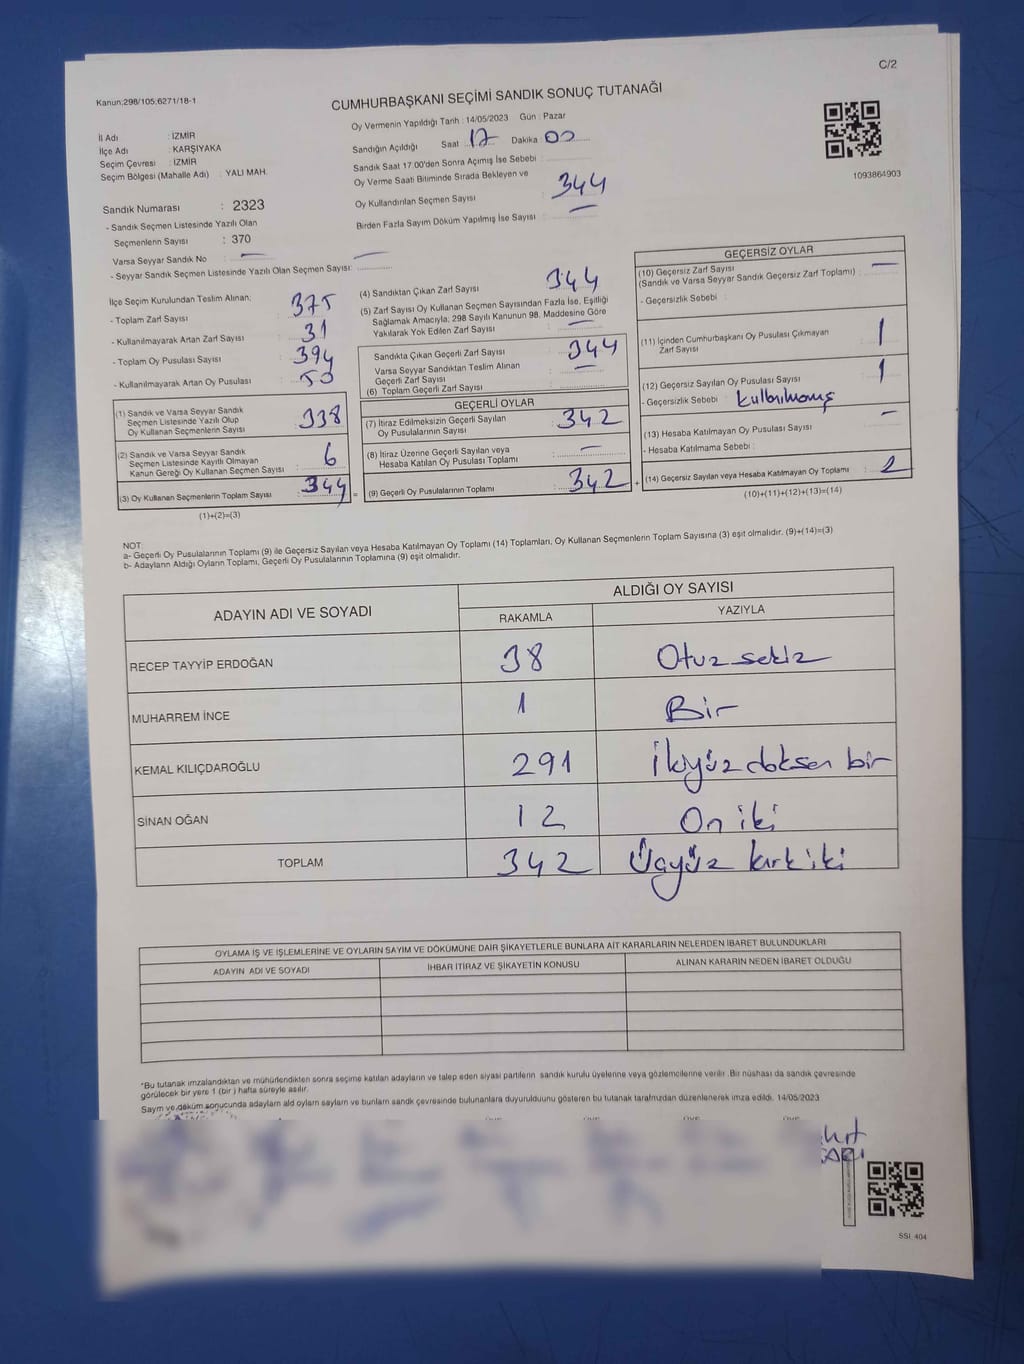 C/2
Kanun:298/105;6271/18-1
CUMHURBAŞKANI SEÇİMİ SANDIK SONUÇ TUTANAĞI
Oy Vermenin Yapıldığı Tarih : 14/05/2023 Gün : Pazar
İl Adı : İZMİR
İlçe Adı : KARŞIYAKA
Seçim Çevresi : İZMİR
Seçim Bölgesi (Mahalle Adı) : YALI MAH.
Sandığın Açıldığı Saat 17 Dakika 00
Sandık Saat 17.00'den Sonra Açımış İse Sebebi :
Oy Verme Saati Bitiminde Sırada Bekleyen ve
Oy Kullandırılan Seçmen Sayısı : 344
Birden Fazla Sayım Döküm Yapılmış İse Sayısı : —
1093864903
Sandık Numarası : 2323
- Sandık Seçmen Listesinde Yazılı Olan
Seçmenlerin Sayısı : 370
Varsa Seyyar Sandık No : —
- Seyyar Sandık Seçmen Listesinde Yazılı Olan Seçmen Sayısı: —
İlçe Seçim Kurulundan Teslim Alınan;
- Toplam Zarf Sayısı : 375
- Kullanılmayarak Artan Zarf Sayısı : 31
- Toplam Oy Pusulası Sayısı : 394
- Kullanılmayarak Artan Oy Pusulası : 50
(1) Sandık ve Varsa Seyyar Sandık
Seçmen Listesinde Yazılı Olup
Oy Kullanan Seçmenlerin Sayısı : 338
(2) Sandık ve Varsa Seyyar Sandık
Seçmen Listesinde Kayıtlı Olmayan
Kanun Gereği Oy Kullanan Seçmen Sayısı : 6
(3) Oy Kullanan Seçmenlerin Toplam Sayısı : 344 =
(1)+(2)=(3)
(4) Sandıktan Çıkan Zarf Sayısı : 344
(5) Zarf Sayısı Oy Kullanan Seçmen Sayısından Fazla İse, Eşitliği
Sağlamak Amacıyla; 298 Sayılı Kanunun 98. Maddesine Göre
Yakılarak Yok Edilen Zarf Sayısı : —
Sandıkta Çıkan Geçerli Zarf Sayısı : 344
Varsa Seyyar Sandıktan Teslim Alınan
Geçerli Zarf Sayısı : —
(6) Toplam Geçerli Zarf Sayısı :
GEÇERLİ OYLAR
(7) İtiraz Edilmeksizin Geçerli Sayılan
Oy Pusulalarının Sayısı : 342
(8) İtiraz Üzerine Geçerli Sayılan veya
Hesaba Katılan Oy Pusulası Toplamı : —
(9) Geçerli Oy Pusulalarının Toplamı : 342 +
GEÇERSİZ OYLAR
(10) Geçersiz Zarf Sayısı
(Sandık ve Varsa Seyyar Sandık Geçersiz Zarf Toplamı) : —
- Geçersizlik Sebebi :
(11) İçinden Cumhurbaşkanı Oy Pusulası Çıkmayan
Zarf Sayısı : 1
(12) Geçersiz Sayılan Oy Pusulası Sayısı : 1
- Geçersizlik Sebebi : kullanılmamış
(13) Hesaba Katılmayan Oy Pusulası Sayısı : -
- Hesaba Katılmama Sebebi :
(14) Geçersiz Sayılan veya Hesaba Katılmayan Oy Toplamı : 2
(10)+(11)+(12)+(13)=(14)
NOT:
a- Geçerli Oy Pusulalarının Toplamı (9) ile Geçersiz Sayılan veya Hesaba Katılmayan Oy Toplamı (14) Toplamları, Oy Kullanan Seçmenlerin Toplam Sayısına (3) eşit olmalıdır. (9)+(14)=(3)
b- Adayların Aldığı Oyların Toplamı, Geçerli Oy Pusulalarının Toplamına (9) eşit olmalıdır.
ADAYIN ADI VE SOYADI
ALDIĞI OY SAYISI
RAKAMLA YAZIYLA
RECEP TAYYİP ERDOĞAN 38 Otuz sekiz
MUHARREM İNCE 1 Bir
KEMAL KILIÇDAROĞLU 291 İkiyüz doksan bir
SİNAN OĞAN 12 On iki
TOPLAM 342 Üçyüz kırk iki
OYLAMA İŞ VE İŞLEMLERİNE VE OYLARIN SAYIM VE DÖKÜMÜNE DAİR ŞİKAYETLERLE BUNLARA AİT KARARLARIN NELERDEN İBARET BULUNDUKLARI
ADAYIN ADI VE SOYADI İHBAR İTİRAZ VE ŞİKAYETİN KONUSU ALINAN KARARIN NEDEN İBARET OLDUĞU
*Bu tutanak imzalandıktan ve mühürlendikten sonra seçime katılan adayların ve talep eden siyasi partilerin sandık kurulu üyelerine veya gözlemcilerine verilir. Bir nüshası da sandık çevresinde
görülecek bir yere 1 (bir) hafta süreyle asılır.
Sayım ve döküm sonucunda adayların ald oyların sayıları ve bunların sandk çevresinde bulunanlara duyurulduunu gösteren bu tutanak tarafmızdan düzenlenerek imza edildi. 14/05/2023
SSI. 404